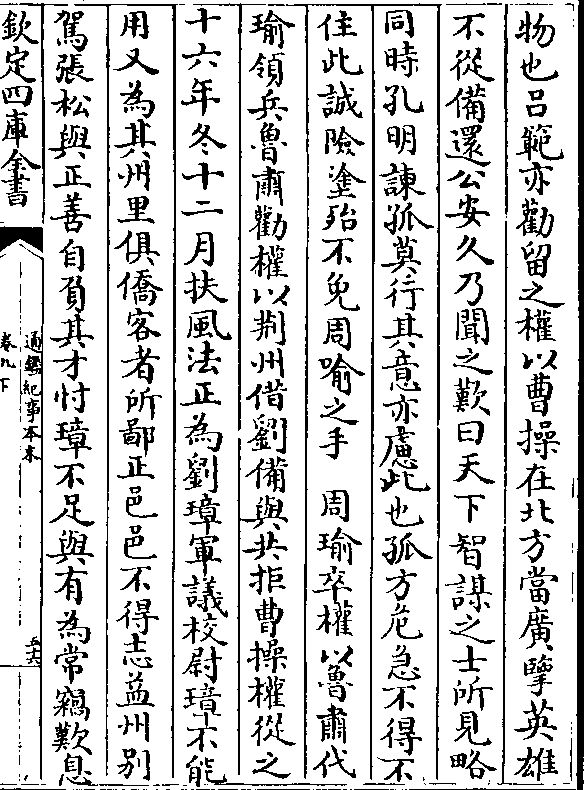 物也呂範亦勸留之權以曹操在北方當廣擥英雄
不從備還公安久乃聞之歎曰天下智謀之士所見略
同時孔明諫孤莫行其意亦慮此也孤方危急不得不
住此誠險塗殆不免周喻之手　周瑜卒權以魯肅代
瑜領兵魯肅勸權以荆州借劉備與共拒曹操權從之
十六年冬十二月扶風法正為劉璋軍議校尉璋不能
用又為其州里俱僑客者所鄙正邑邑不得志益州别
駕張松與正善自負其才忖璋不足與有為常竊歎息
欽定四庫全書
通鑑紀事本末
卷九下
五六